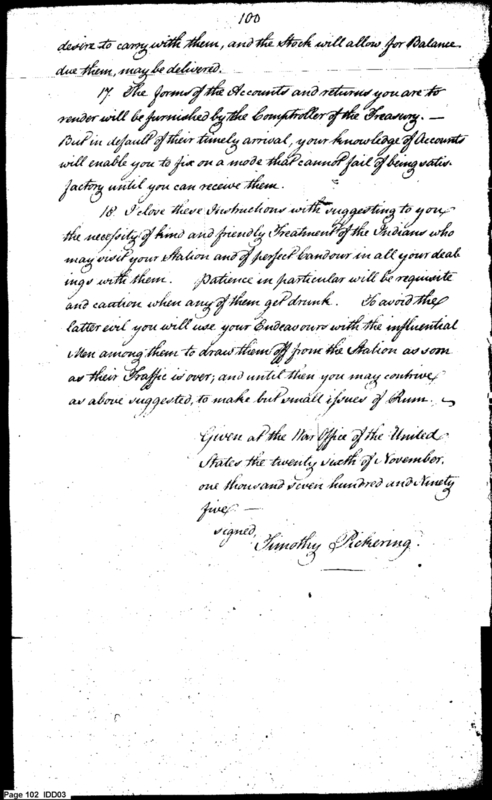 100
desire to carry with them, and the Stock will allow for Balance
due them, may be delivered.
17 The forms of the Accounts and returns you are to
render will be furnished by the Comptroller of the Treasury. —
But in default of their timely arrival, your knowledge of Accounts
will enable you to fix on a mode that cannot fail of being satis
factory until you can receive them.
18 I close these Instructions with suggesting to you
the necessity of kind and friendly Treatment of the Indians who
may visit your Station and of perfect Candour in all your deal
ings with them. Patience in particular will be requisite
and caution when any of them get drunk. To avoid the
latter evil you will use your Endeavours with the influential
Men among them to draw them off from the Station as soon
as their Traffic is over; and until then you may contrive
as above suggested, to make but small issues of Rum.
Given at the War Office of the United
States the twenty sixth of November.
one thousand seven hundred and Ninety
five —
signed,
Timothy Pickering.
Page 102 IDD03